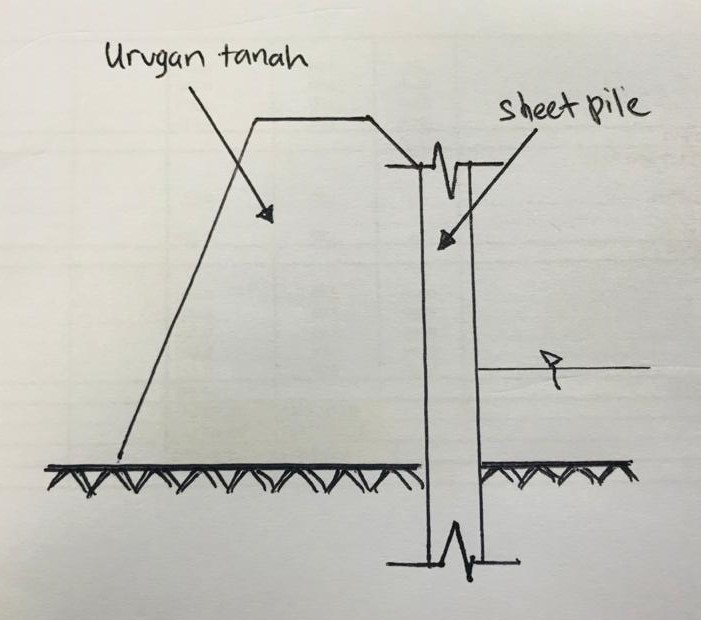 Urugan tanah
sheet pile